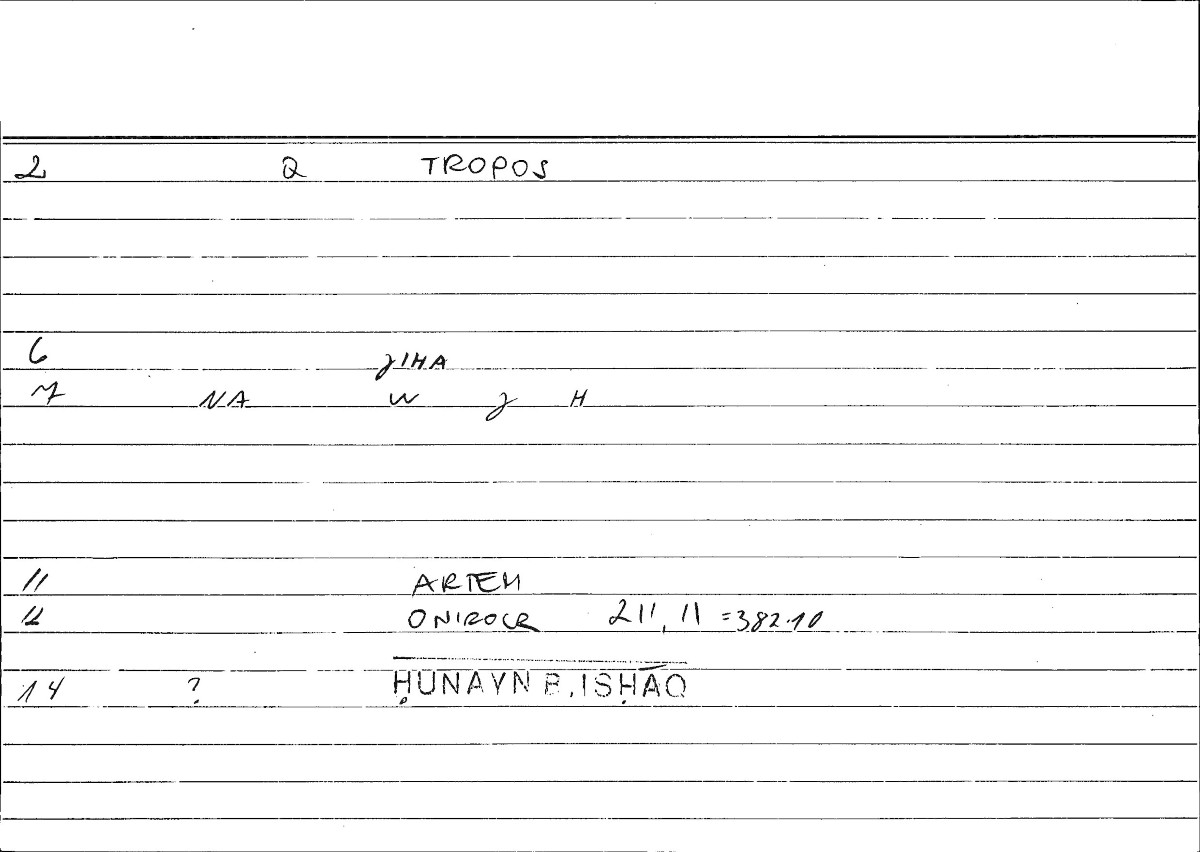 2 Q TROPOS
6 JIHA
7 NA W J H
11 ARTEM
12 ONIROCR 211,11 =382.10
14 ? ḤUNAYN B. ISḤĀQ